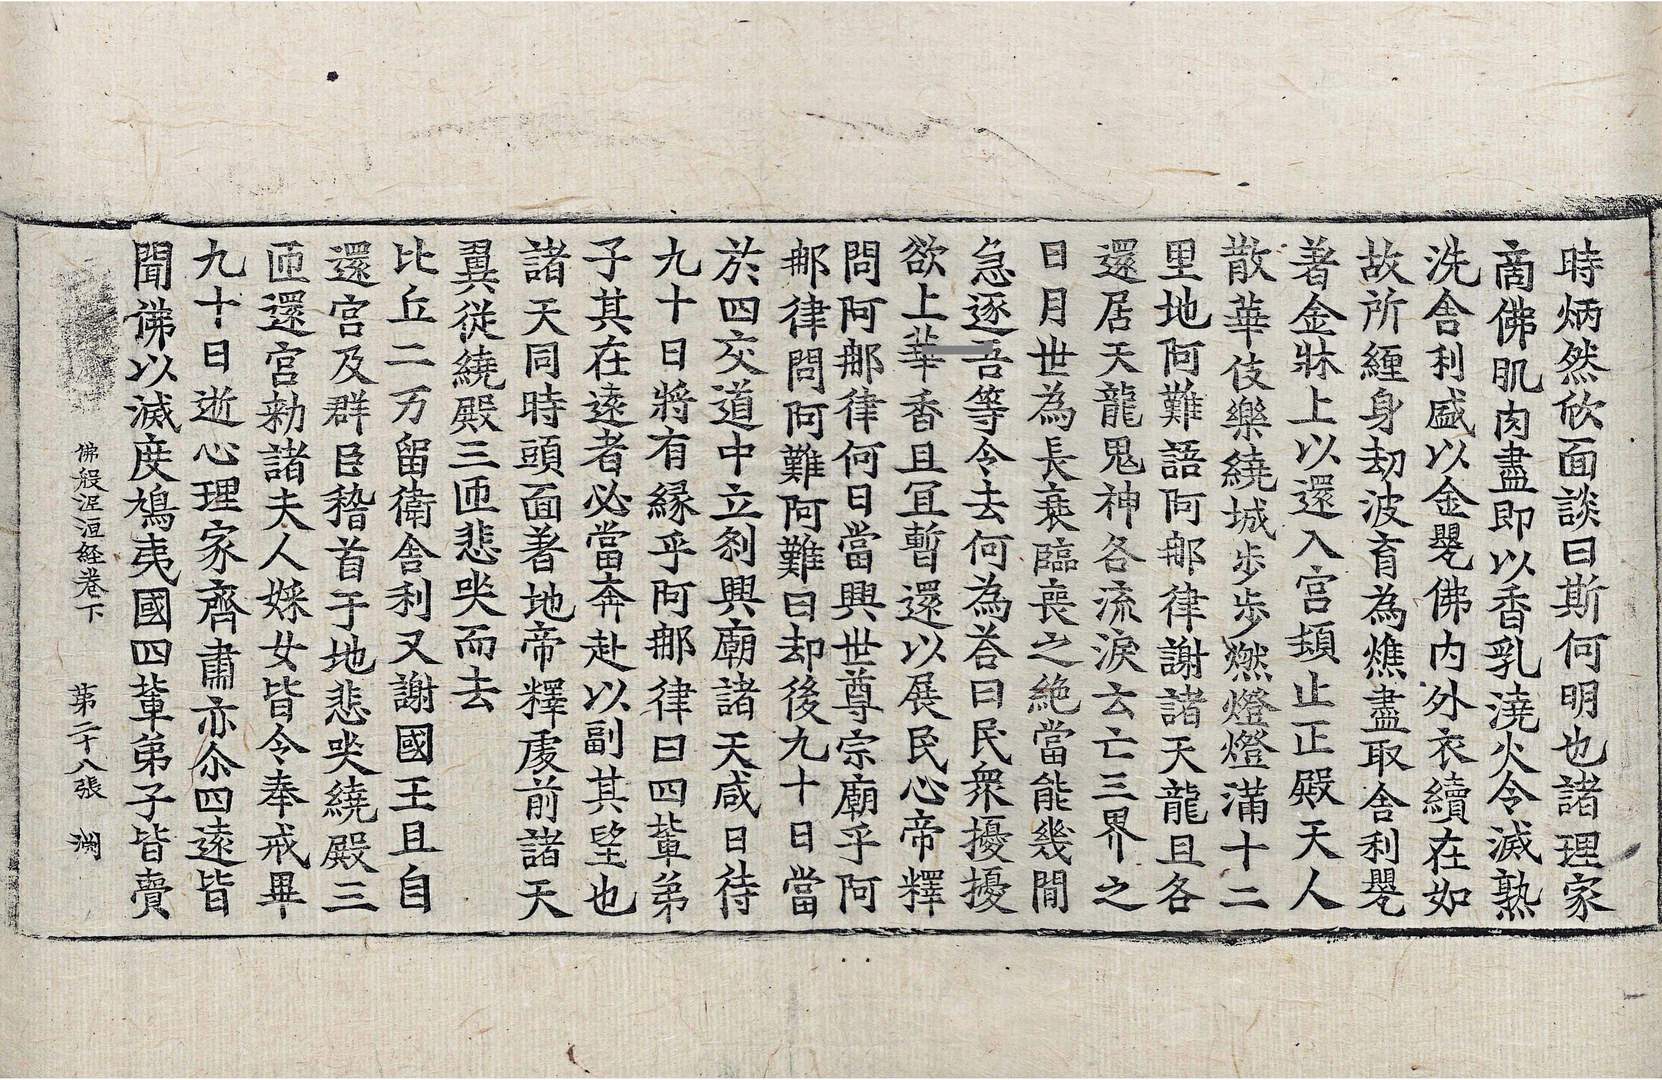 時炳然欣面談曰斯何明也諸理家
啇佛肌肉盡即以香乳澆火令滅熟
洗舍利盛以金甖佛内外衣續在如
故所纏身劫波育為燋盡取舍利甖
著金牀上以還入宮頓止正殿天人
散華伎樂繞城步步燃燈燈滿十二
里地阿難語阿那律謝諸天龍且各
還居天龍鬼神各流淚云亡三界之
日月世為長衰臨喪之絶當能幾間
急逐吾等令去何為荅曰民衆擾擾
欲上華香且冝暫還以展民心帝釋
問阿那律何日當興世尊宗廟乎阿
那律問阿難阿難曰却後九十日當
於四交道中立刹興廟諸天咸曰待
九十日將有緣乎阿那律曰四軰弟
子其在遠者必當奔赴以副其望也
諸天同時頭面著地帝釋處前諸天
翼從繞殿三匝悲哭而去
比丘二万留衛舍利又謝國王且自
還宮及群臣稽首于地悲哭繞殿三
匝還宮勑諸夫人婇女皆令奉戒畢
九十日逝心理家齊肅亦尒四遠皆
聞佛以滅度鳩夷國四軰弟子皆賣
佛般泥洹経卷下 第二十八張 渊